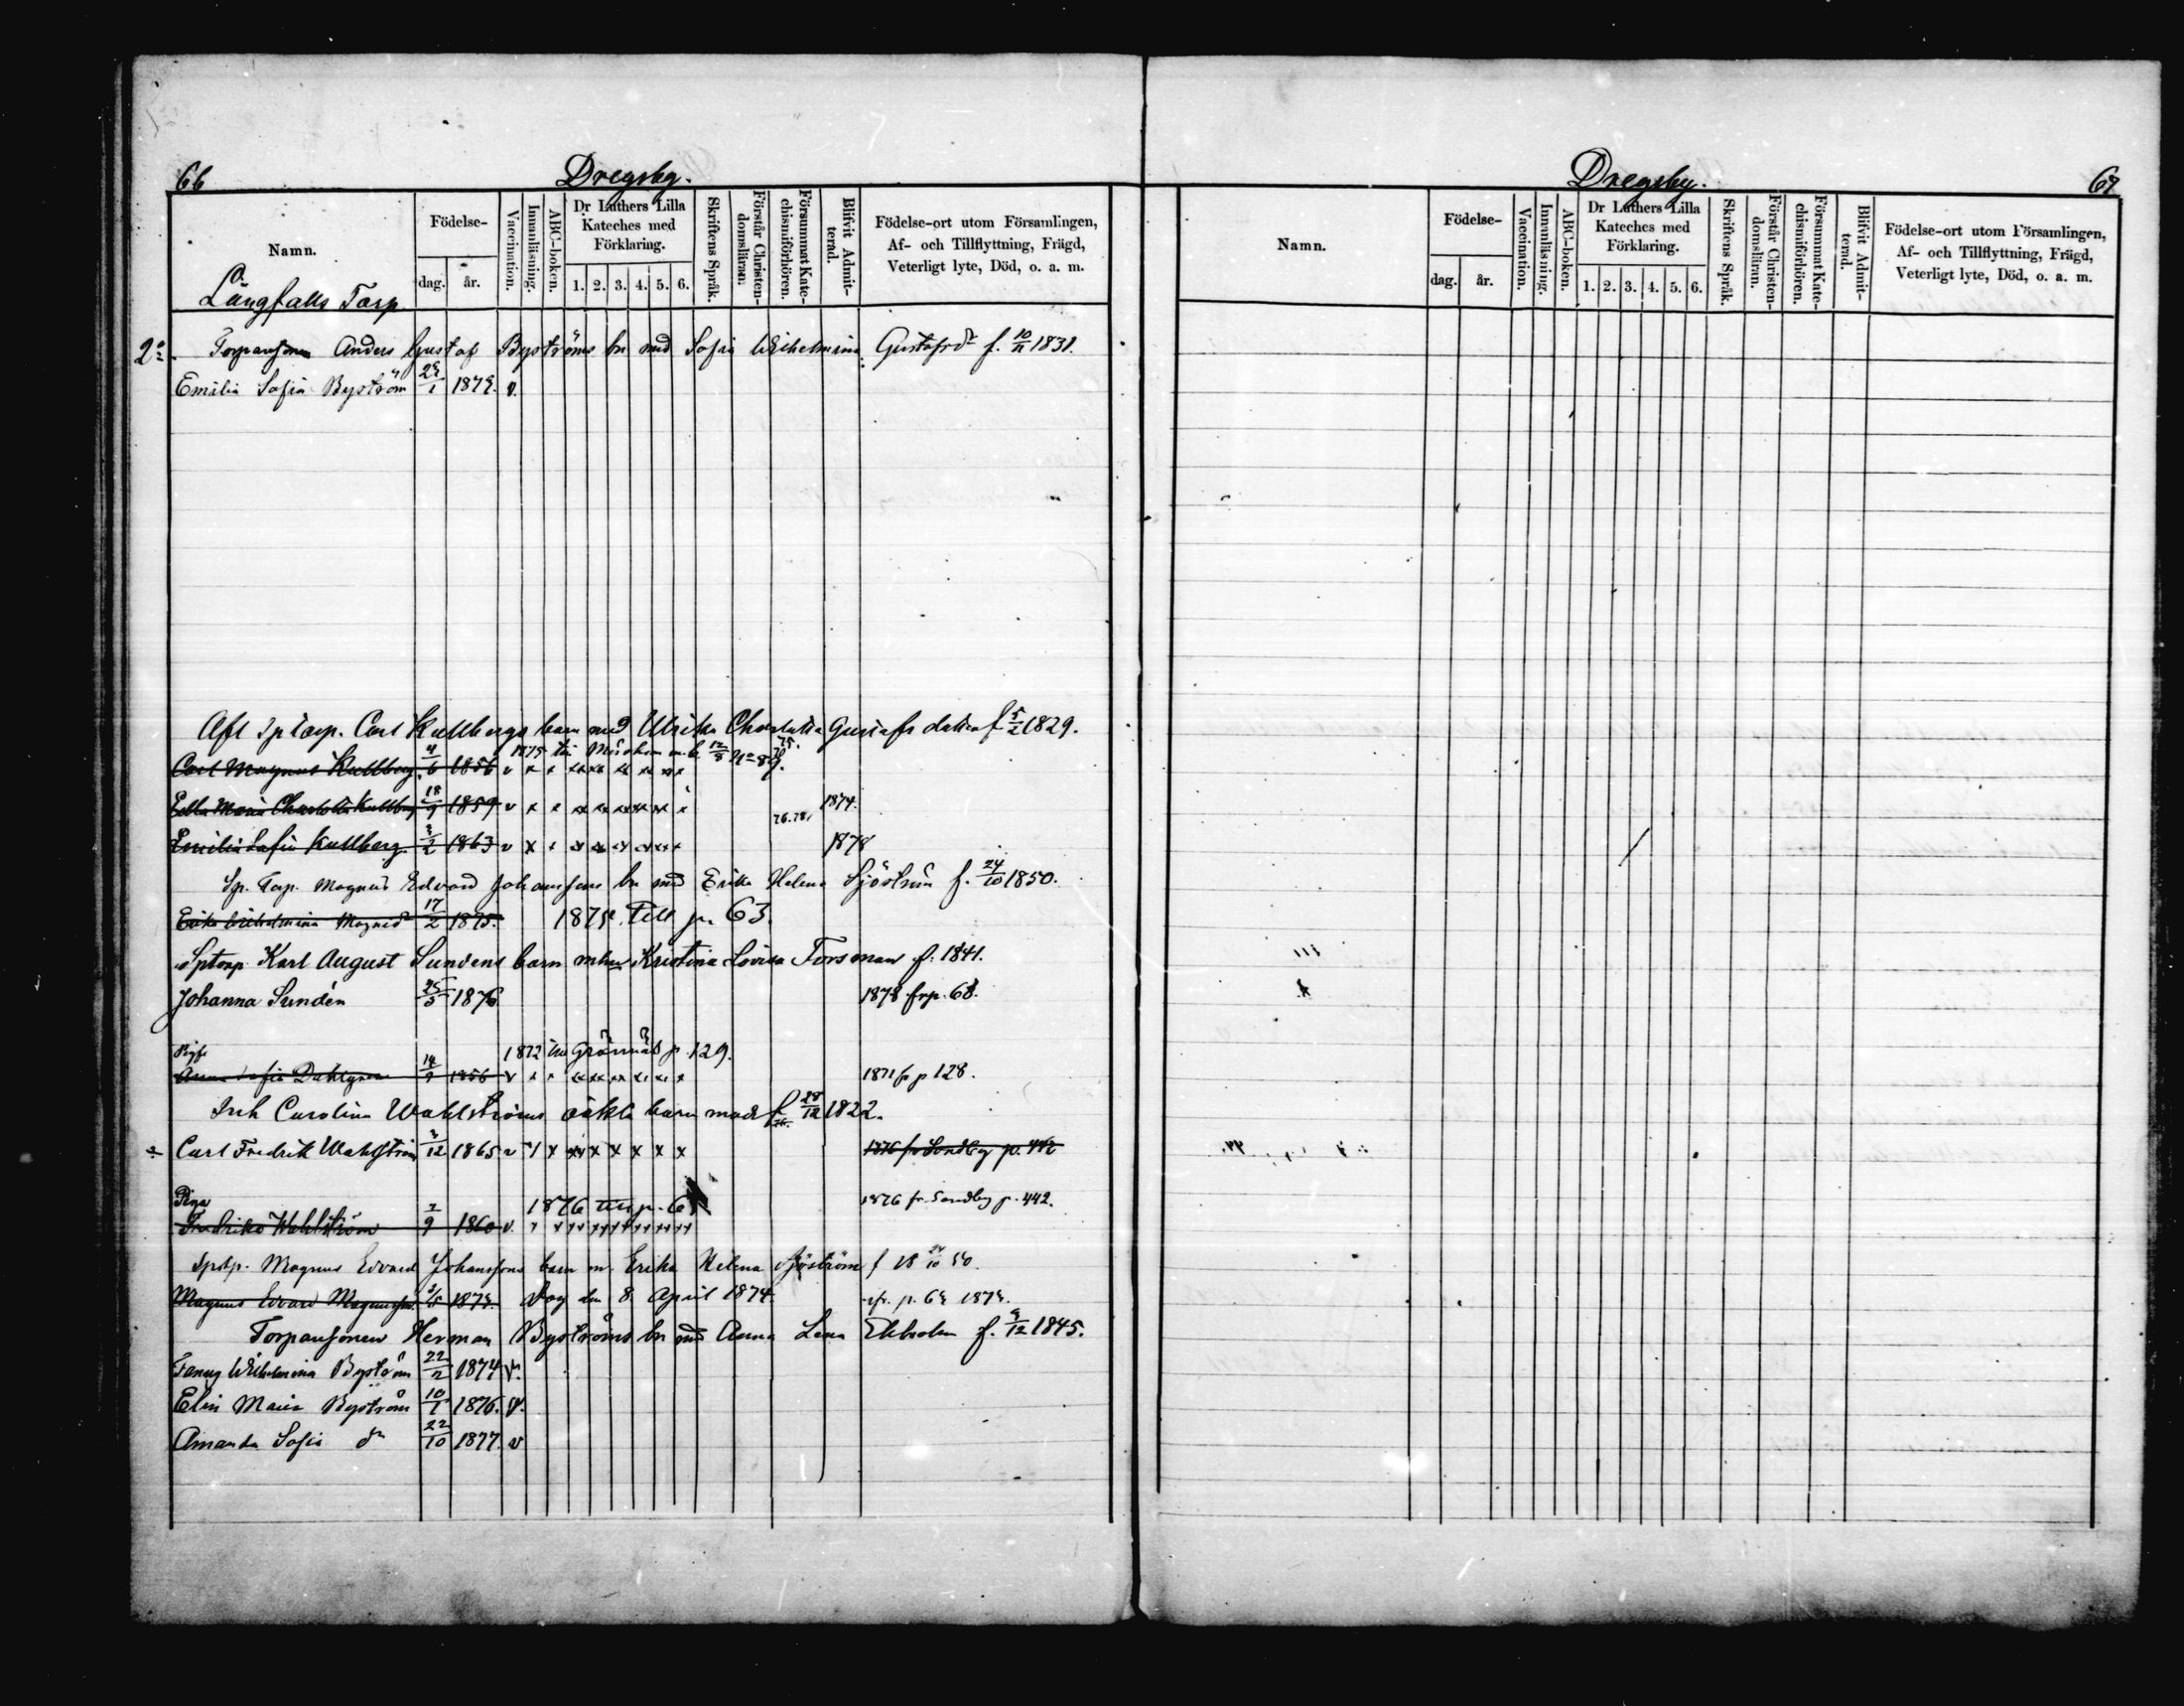 66
Dregsby.
Namn.
Födelse-
dag. år.
Vaccination.
Innanläsning.
ABC-boken.
Dr Luthers Lilla Kateches med Förklaring.
1. 2. 3. 4. 5. 6.
Skriftens Språk.
Förstår Christendomsläran:
Försummat Katechismiförhören.
Blifvit Admitterad.
Födelse-ort utom Församlingen,
Af- och Tillflyttning, Frägd,
Veterligt lyte, Död, o. a. m.
Långfalls Torp
Torparsonen Anders Gustaf Byströms bn med Sofia Wilhelmina Gustafsdr f. 10/11 1831.
Emilia Sofia Byström 1875. v.
Afl sptorp. Carl Kullbergs barn med Ulrika Charlotta Gustafsdotter f 5/2 1829.
1875 till
Carl Magnus Kullberg 4/6 1856 v x x xx xx xx xx xx x
Maria Charlotta Kullberg 18/9 1859 v x x xx xx xx xx xx x 1874.
76.78.
Emilia Sofia Kullberg 1863 v x x xx xx xx xx xx x 1878
Sp. Torp. Magnus Edvard Johanssons bn med Erika Helena Sjöström f. 24/10 1850.
Erika Wilhelmina Magnidr 17/2 1875. Till p. 63.
Sptorp Karl August Sundens barn m hu Kristina Lovisa Forsman f. 1841.
Johanna Sundén 25/5 1876 1878 frp. 68.
1872 till p 129.
Piga
Anna Sofia Dahlgren 14/9 1856 v x x xx xx xx xx xx x 1871 fr p 128.
Inh Carolina Wahlströms oäkta barn med f 28/12 1822.
Carl Fredrik Wahlström 3/12 1865 v x x x x x x x 1876 fr Sandby p. 442
Piga 1876 till p. 1876 fr. Sandby p. 442.
Fredrika Wahlström 1860 v. x x x x x x x x
Sptp. Magnus Edvard Johanssons barn m. Erika Helena Sjöström f 18 24/10 50.
Magnus Edvard Magnusson 1873. Dog den 8 April 1874.
Torparsonen Herman Byströms bn med Anna Lena Ekholm f. 9/12 1845.
Fanny Wilhelmina Byström 1874 v.
Elin Maria Byström 10/1 1876. v.
Amanda Sofia dn 22/10 1877 v
Dregsby.
67
Namn.
Födelse-
dag. år.
Vaccination.
Innanläsning.
ABC-boken.
Dr Luthers Lilla Kateches med Förklaring.
1. 2. 3. 4. 5. 6.
Skriftens Språk.
Förstår Christendomsläran.
Försummat Katechismiförhören.
Blifvit Admitterad.
Födelse-ort utom Församlingen,
Af- och Tillflyttning, Frägd,
Veterligt lyte, Död, o. a. m.